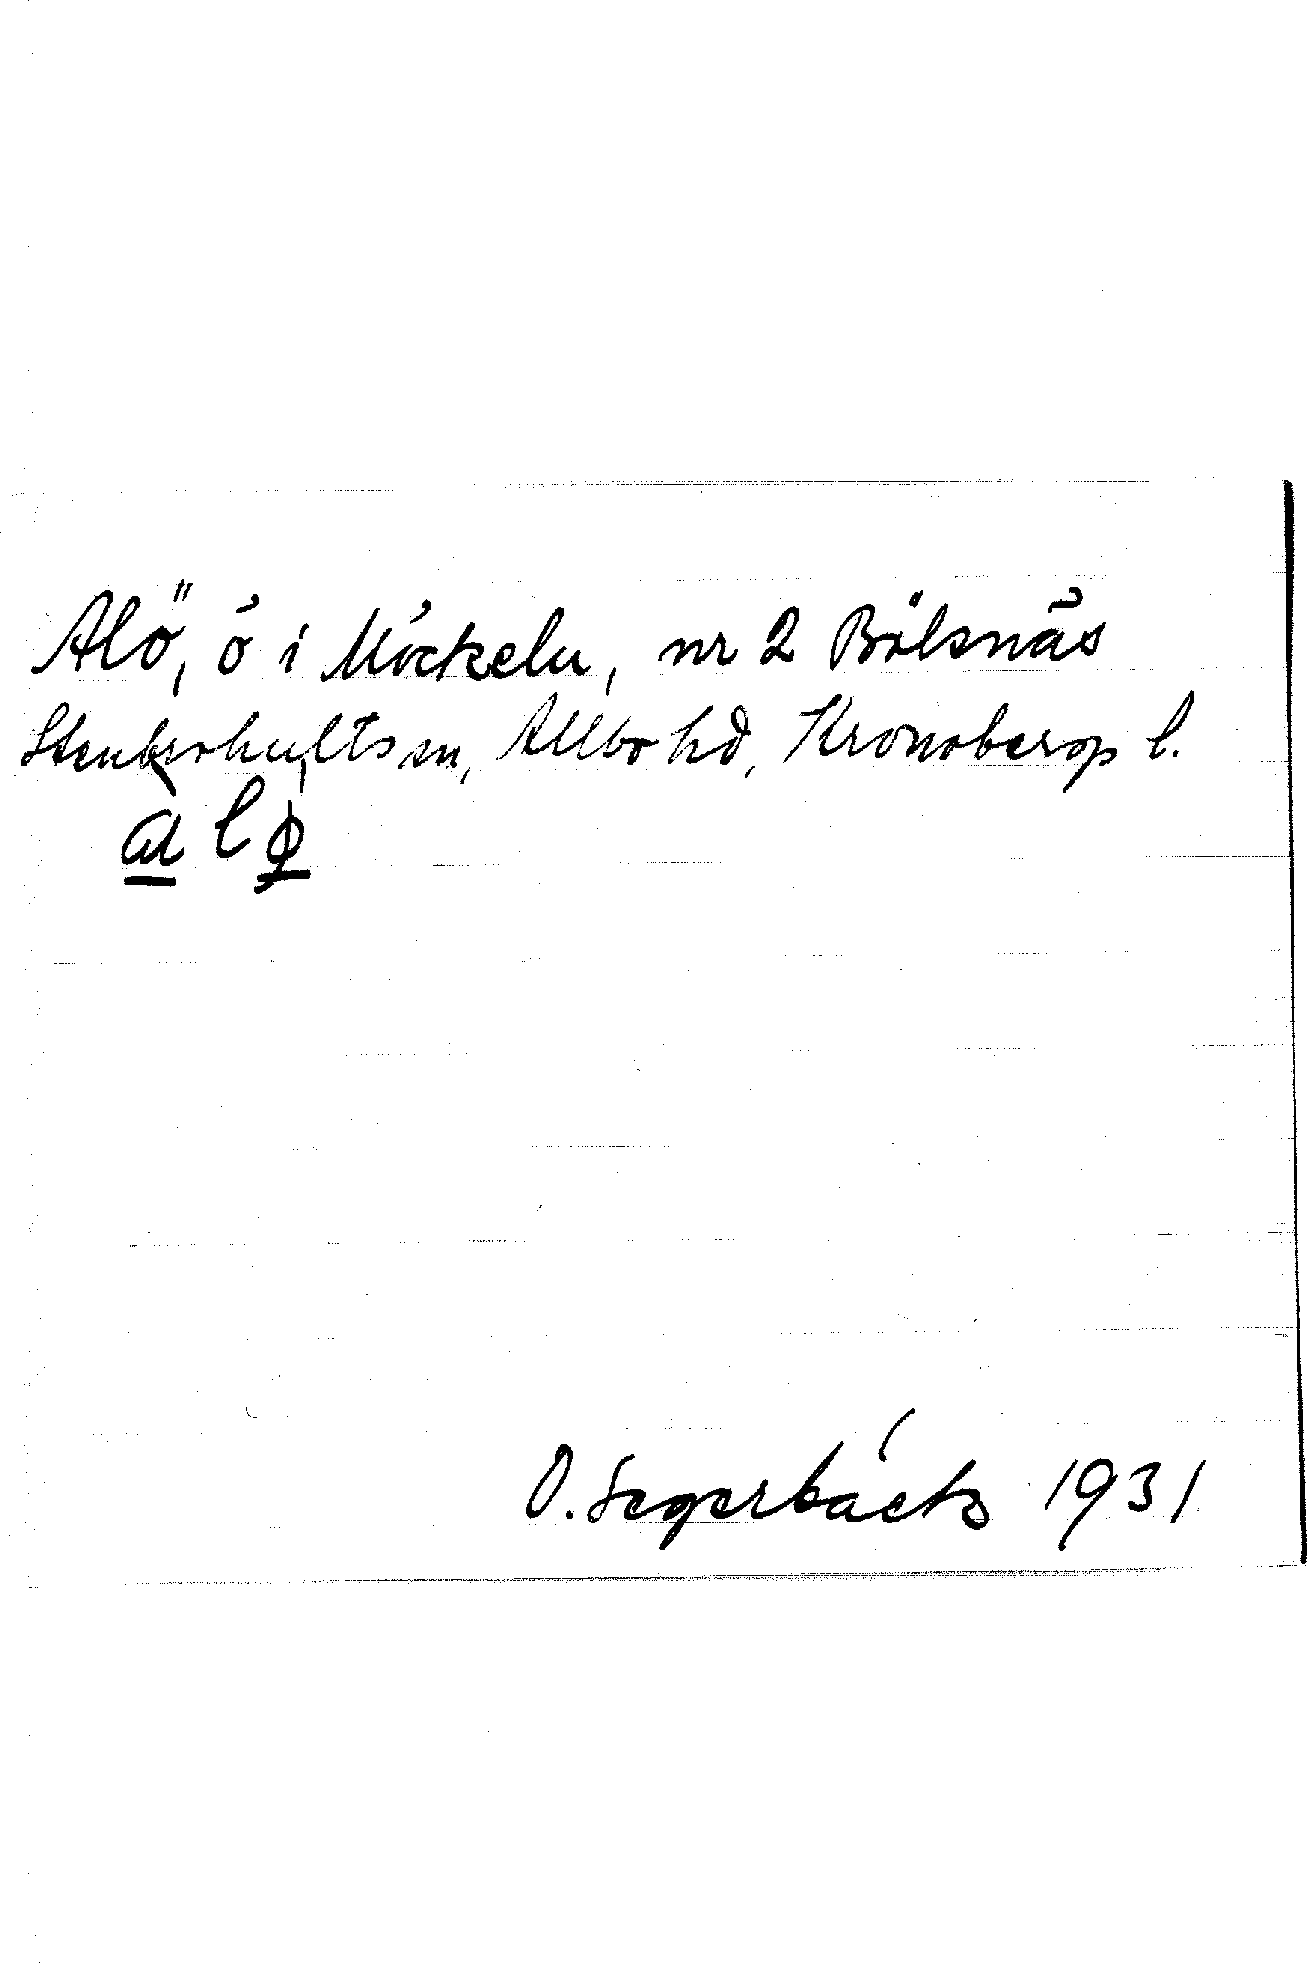 Alö, ö i Möckeln, nr 2 Bölsnäs
Stenbrohults sn, Allbo hd, Kronobergs l.
ɑ̀lø̀
O. Segerbäck 1931